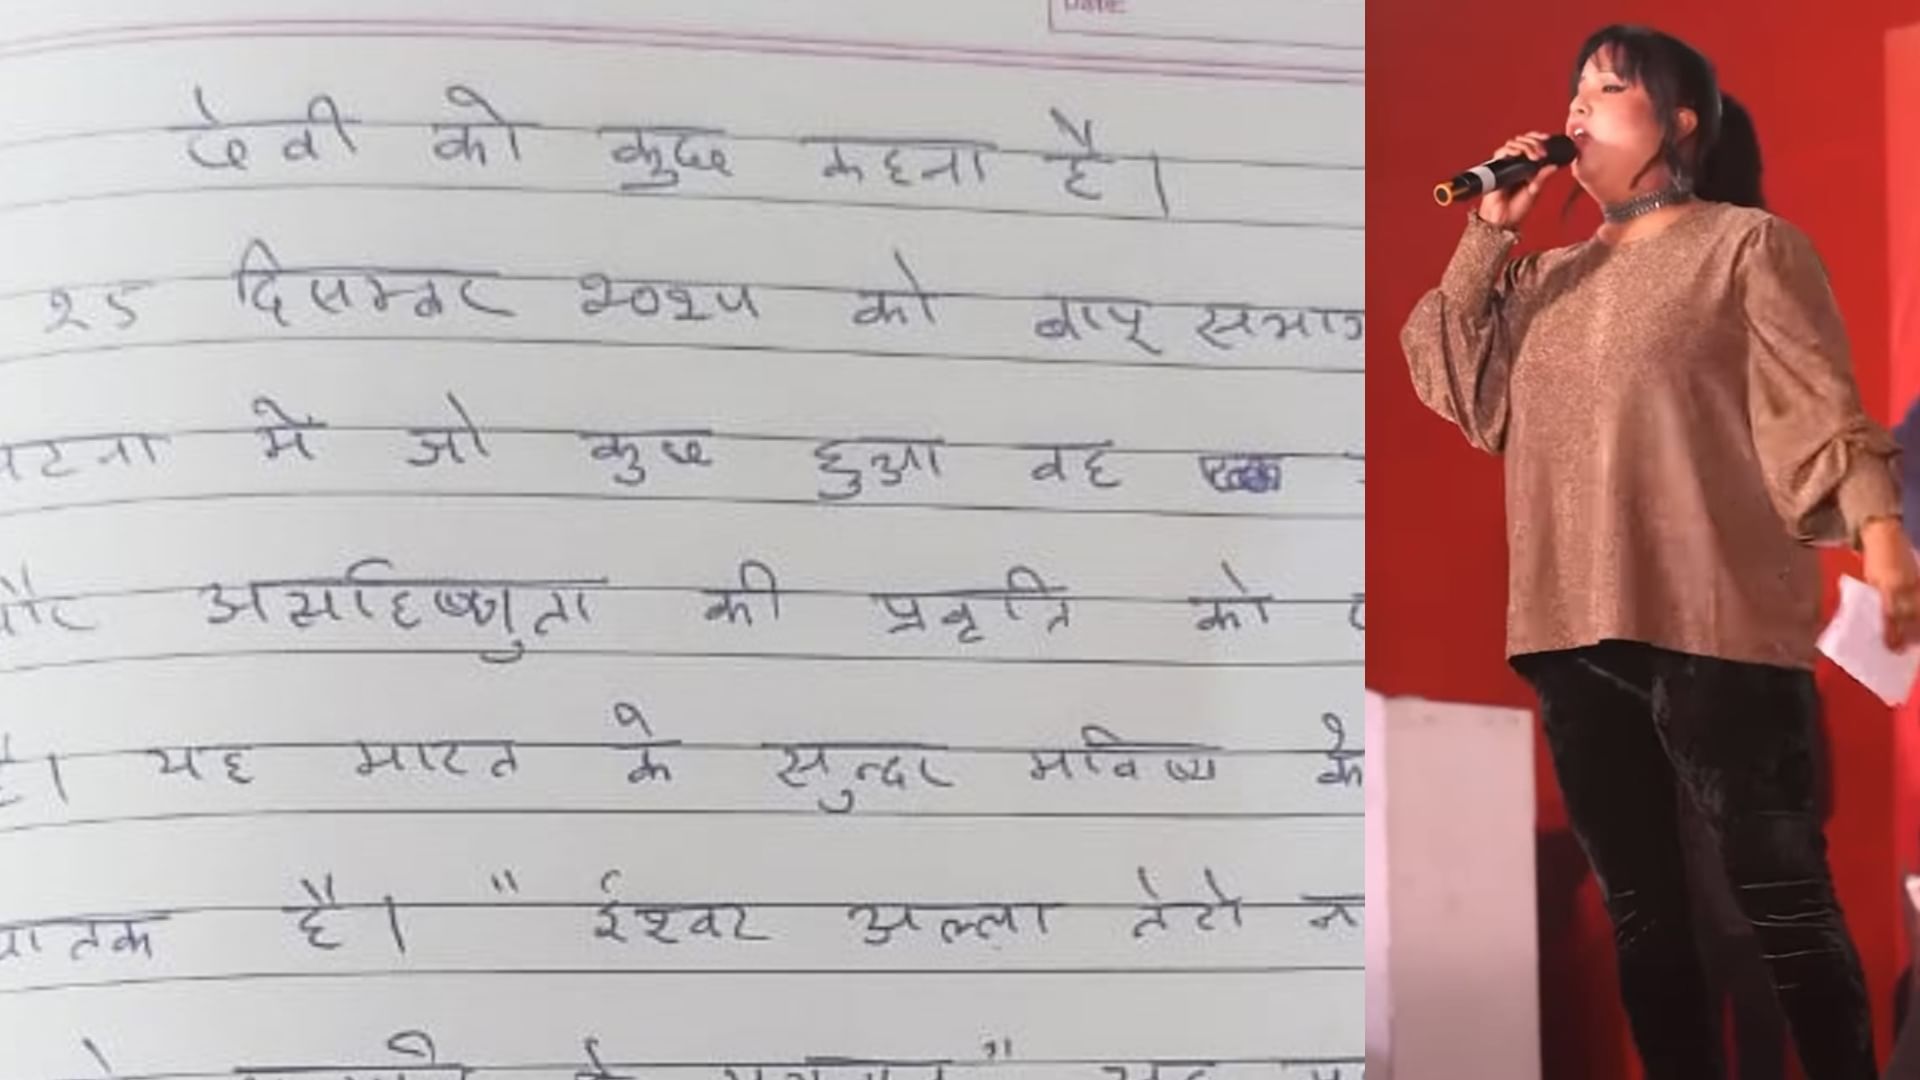 Date:
देवी को कुछ कहना है।
२५ दिसम्बर २०२४ को बापू सभाग
पटना में जो कुछ हुआ वह
और असहिष्णुता की प्रवृत्ति को
है। यह भारत के सुन्दर भविष्य के
घातक है। " ईश्वर अल्ला तेरो न